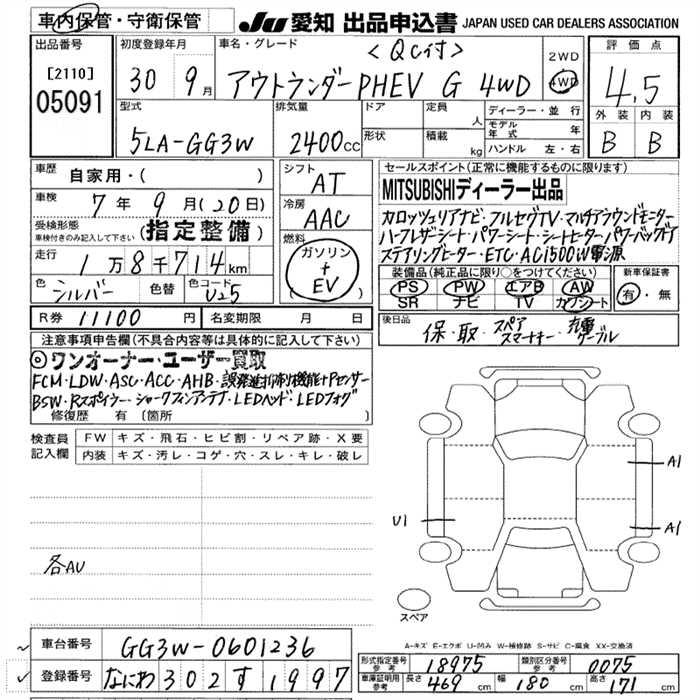 車内保管・守衛保管
JU 愛知 出品申込書 JAPAN USED CAR DEALERS ASSOCIATION
出品番号
[2110]
05091
初度登録年月
30 9月
車名・グレード
<QC付>
アウトランダーPHEV G 4WD
2WD
4WD
評価点
4.5
外装 内装
B B
型式
5LA-GG3W
排気量
2400cc
ドア
形状
定員 人
積載 kg
ディーラー・並行
モデル年式 年
ハンドル 左・右
車歴
自家用・( )
車検
7年 9月(20日)
受検形態
車検付きのみ記入して下さい
(指定整備)
走行
1万8千714km
色 シルバー 色替 色コード U25
シフト
AT
冷房
AAC
燃料
ガソリン
+
EV
セールスポイント(正常に機能するものに限ります)
MITSUBISHIディーラー出品
カロッツェリアナビ・フルセグTV・マルチアラウンドモニター
ハーフレザーシート・パワーシート・シートヒーター・パワーバックドア
ステアリングヒーター・ETC・AC1500W電源
装備品(純正品に限り○をつけてください)
PS PW エアB AW
SR ナビ TV カワシート
新車保証書
有・無
R券 11100円 名変期限 月 日
後日品
保・取・スペアスマートキー・充電ケーブル
注意事項申告欄(不具合内容等は具体的に記入して下さい)
◎ワンオーナー・ユーザー買取
FCM・LDW・ASC・ACC・AHB・誤発進抑制機能+Pセンサー
BSW・Rスポイラー・シャークフィンアンテナ・LEDヘッド・LEDフォグ
修復歴 有 [箇所 ]
検査員
記入欄
FW キズ・飛石・ヒビ割・リペア跡・X要
内装 キズ・汚レ・コゲ・穴・スレ・キレ・破レ
各AU
A1
U1
A1
スペア
A-キズ E-エクボ U-凹み W-補修跡 S-サビ C-腐食 XX-交換済
車台番号 GG3W-0601236
登録番号 なにわ 302 す 1997
形式指定番号 参考 18975 類別区分番号 参考 0075
車庫証明用 参考 長さ 469cm 幅 180cm 高さ 171cm